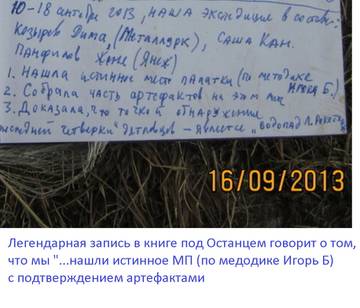 10-18 сентября 2013, наша экспедиция в составе:
Козырев Дима, (Металлург), Саша Кан.
Панфилов (Янеж)
1. Нашла истинное место палатки (по методике Игоря Б.)
2. Собрала часть артефактов на этом
3. Доказала, что точкой обнаружения
последней четверки дятловцев - является "водопад Л.
16/09/2013
Легендарная запись в книге под Останцем говорит о том,
что мы "...нашли истинное МП (по медодике Игорь Б)
с подтверждением артефактами